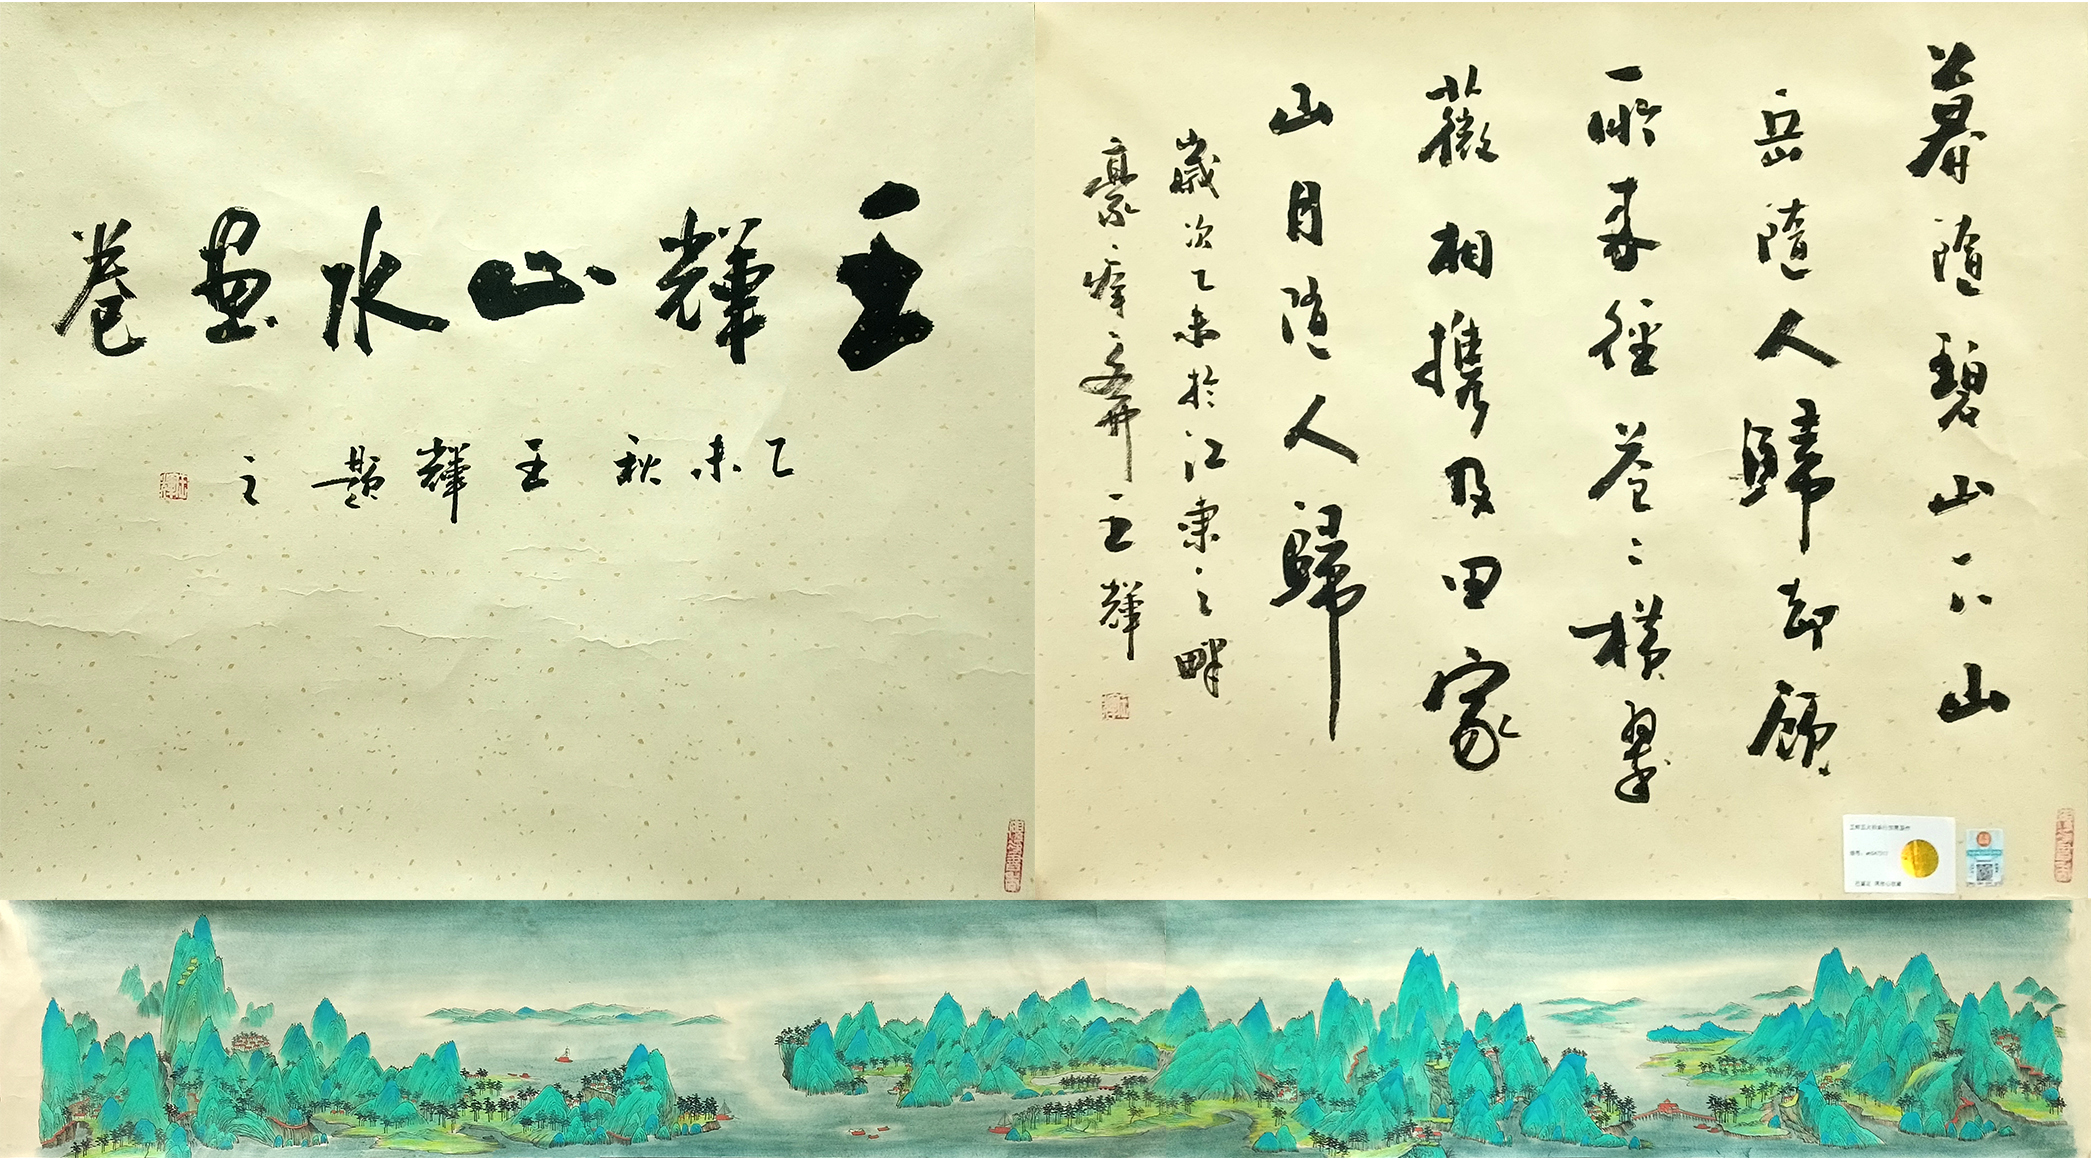 王輝山水畫卷
乙未秋王輝題之
暮隨碧山下山
岳隨人歸却顧
所來徑蒼〻橫翠
薇相攜及田家
山月随人歸
歲次乙未於江東之畔
王輝